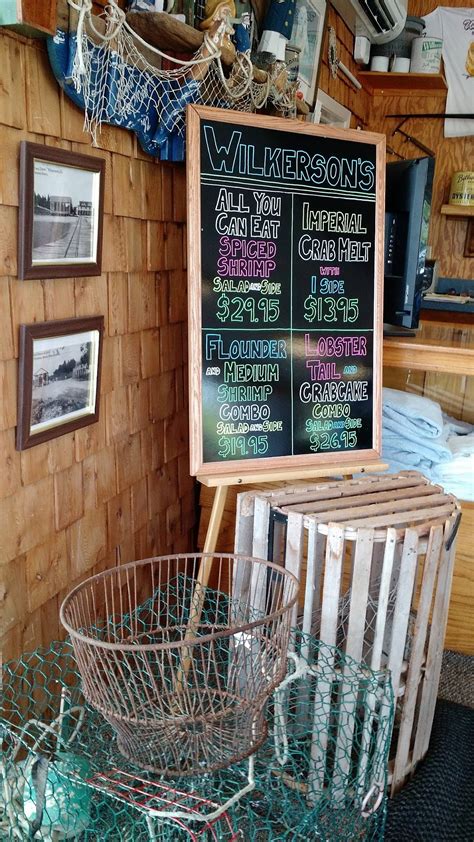 WILKERSON'S
ALL YOU
CAN EAT
SPICED
SHRIMP
SALAD AND SIDE
$29.95
IMPERIAL
CRAB MELT
WITH
1 SIDE
$13.95
FLOUNDER
AND MEDIUM
SHRIMP
COMBO
SALAD AND SIDE
$19.95
LOBSTER
TAIL AND
CRABCAKE
COMBO
SALAD AND SIDE
$26.95